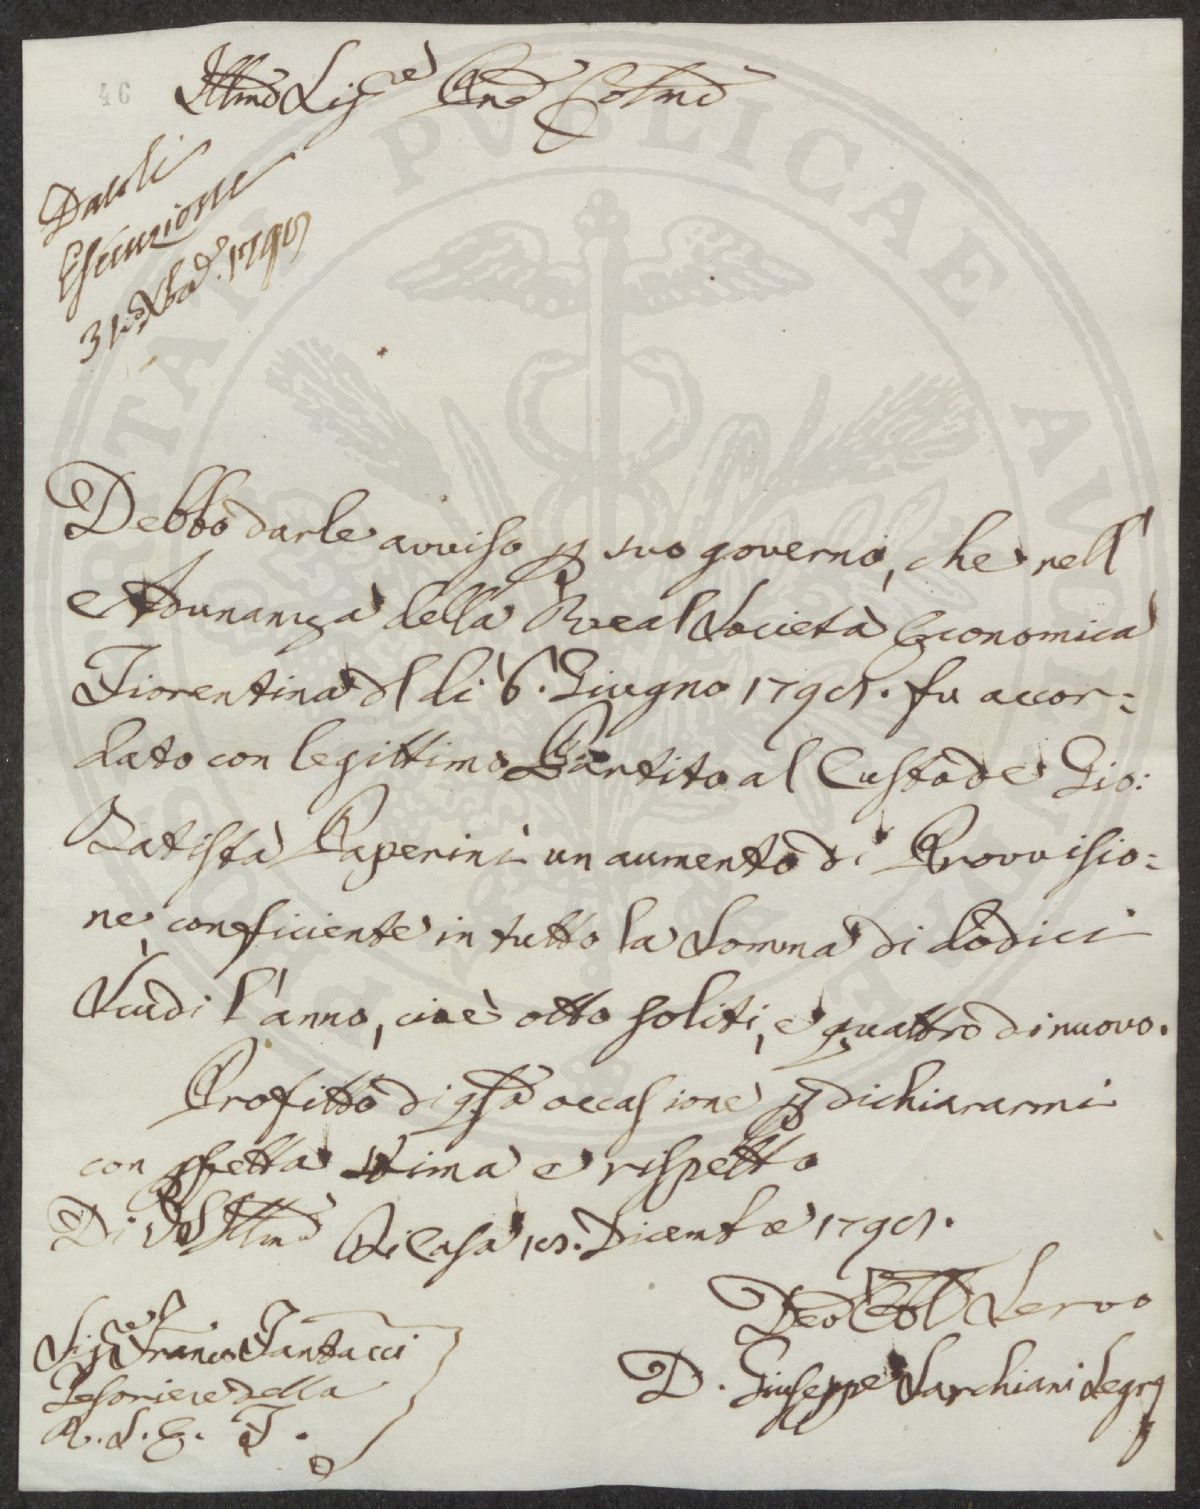 46
Illmo Sigre Pne Colmo
Dateli
Esecuzione
31. Xbre 1795
Debbo darle avviso p suo governo, che nell'
Adunanza della Real Società Economica
Fiorentina del dì 6. Giugno 1795. fu accor=
dato con legittimo Partito al Custode Gio:
Batista Paperini un aumento di Provvisio=
ne, conficiente in tutto la Somma di dodici
Scudi l'anno, cioè otto soliti, e quattro di nuovo.
Profitto di qsta occasione p dichiararmi
con pfetta stima e rispetto
Di VS Illma Di Casa 15. Dicembre 1795.
Devo Obbl Servo
D. Giuseppe Sarchiani Segr
Sigre Franco Fantacci
Tesoriere della
R. S. E. F.
PVBLICAE